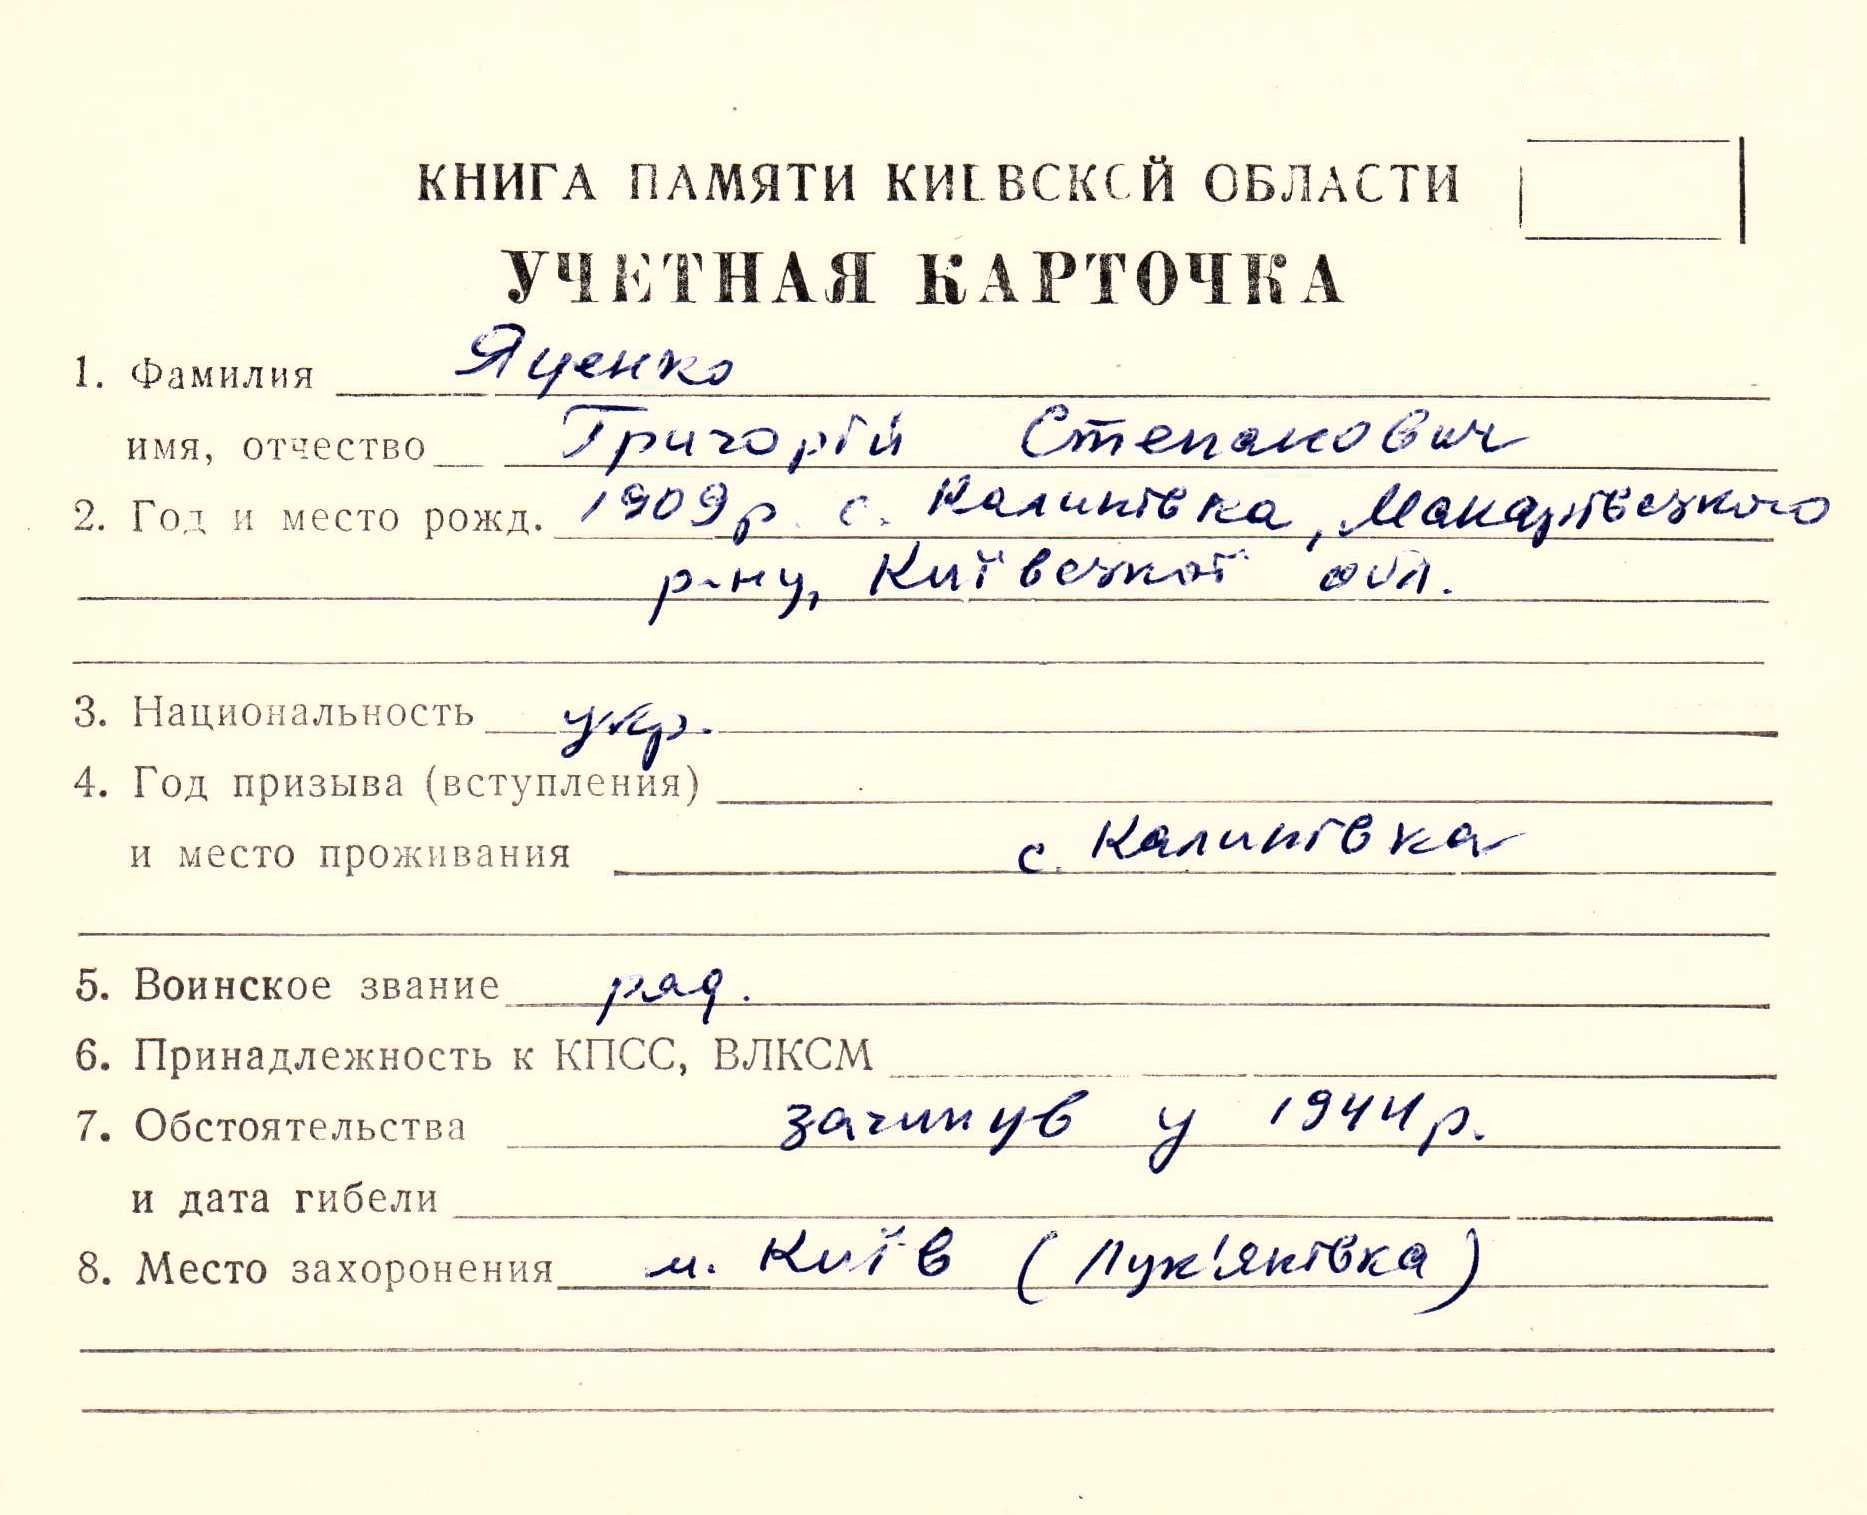 КНИГА ПАМЯТИ КИЕВСКОЙ ОБЛАСТИ
УЧЕТНАЯ КАРТОЧКА
1. Фамилия Яценко
имя, отчество Григорій Степанович
2. Год и место рожд. 1909 р. с. Калинівка, Макарівського
р-ну, Київської обл.
3. Национальность укр.
4. Год призыва (вступления)
и место проживания с. Калинівка
5. Воинское звание ряд.
6. Принадлежность к КПСС, ВЛКСМ
7. Обстоятельства загинув у 1944 р.
и дата гибели
8. Место захоронения м. Київ (Лук'янівка)